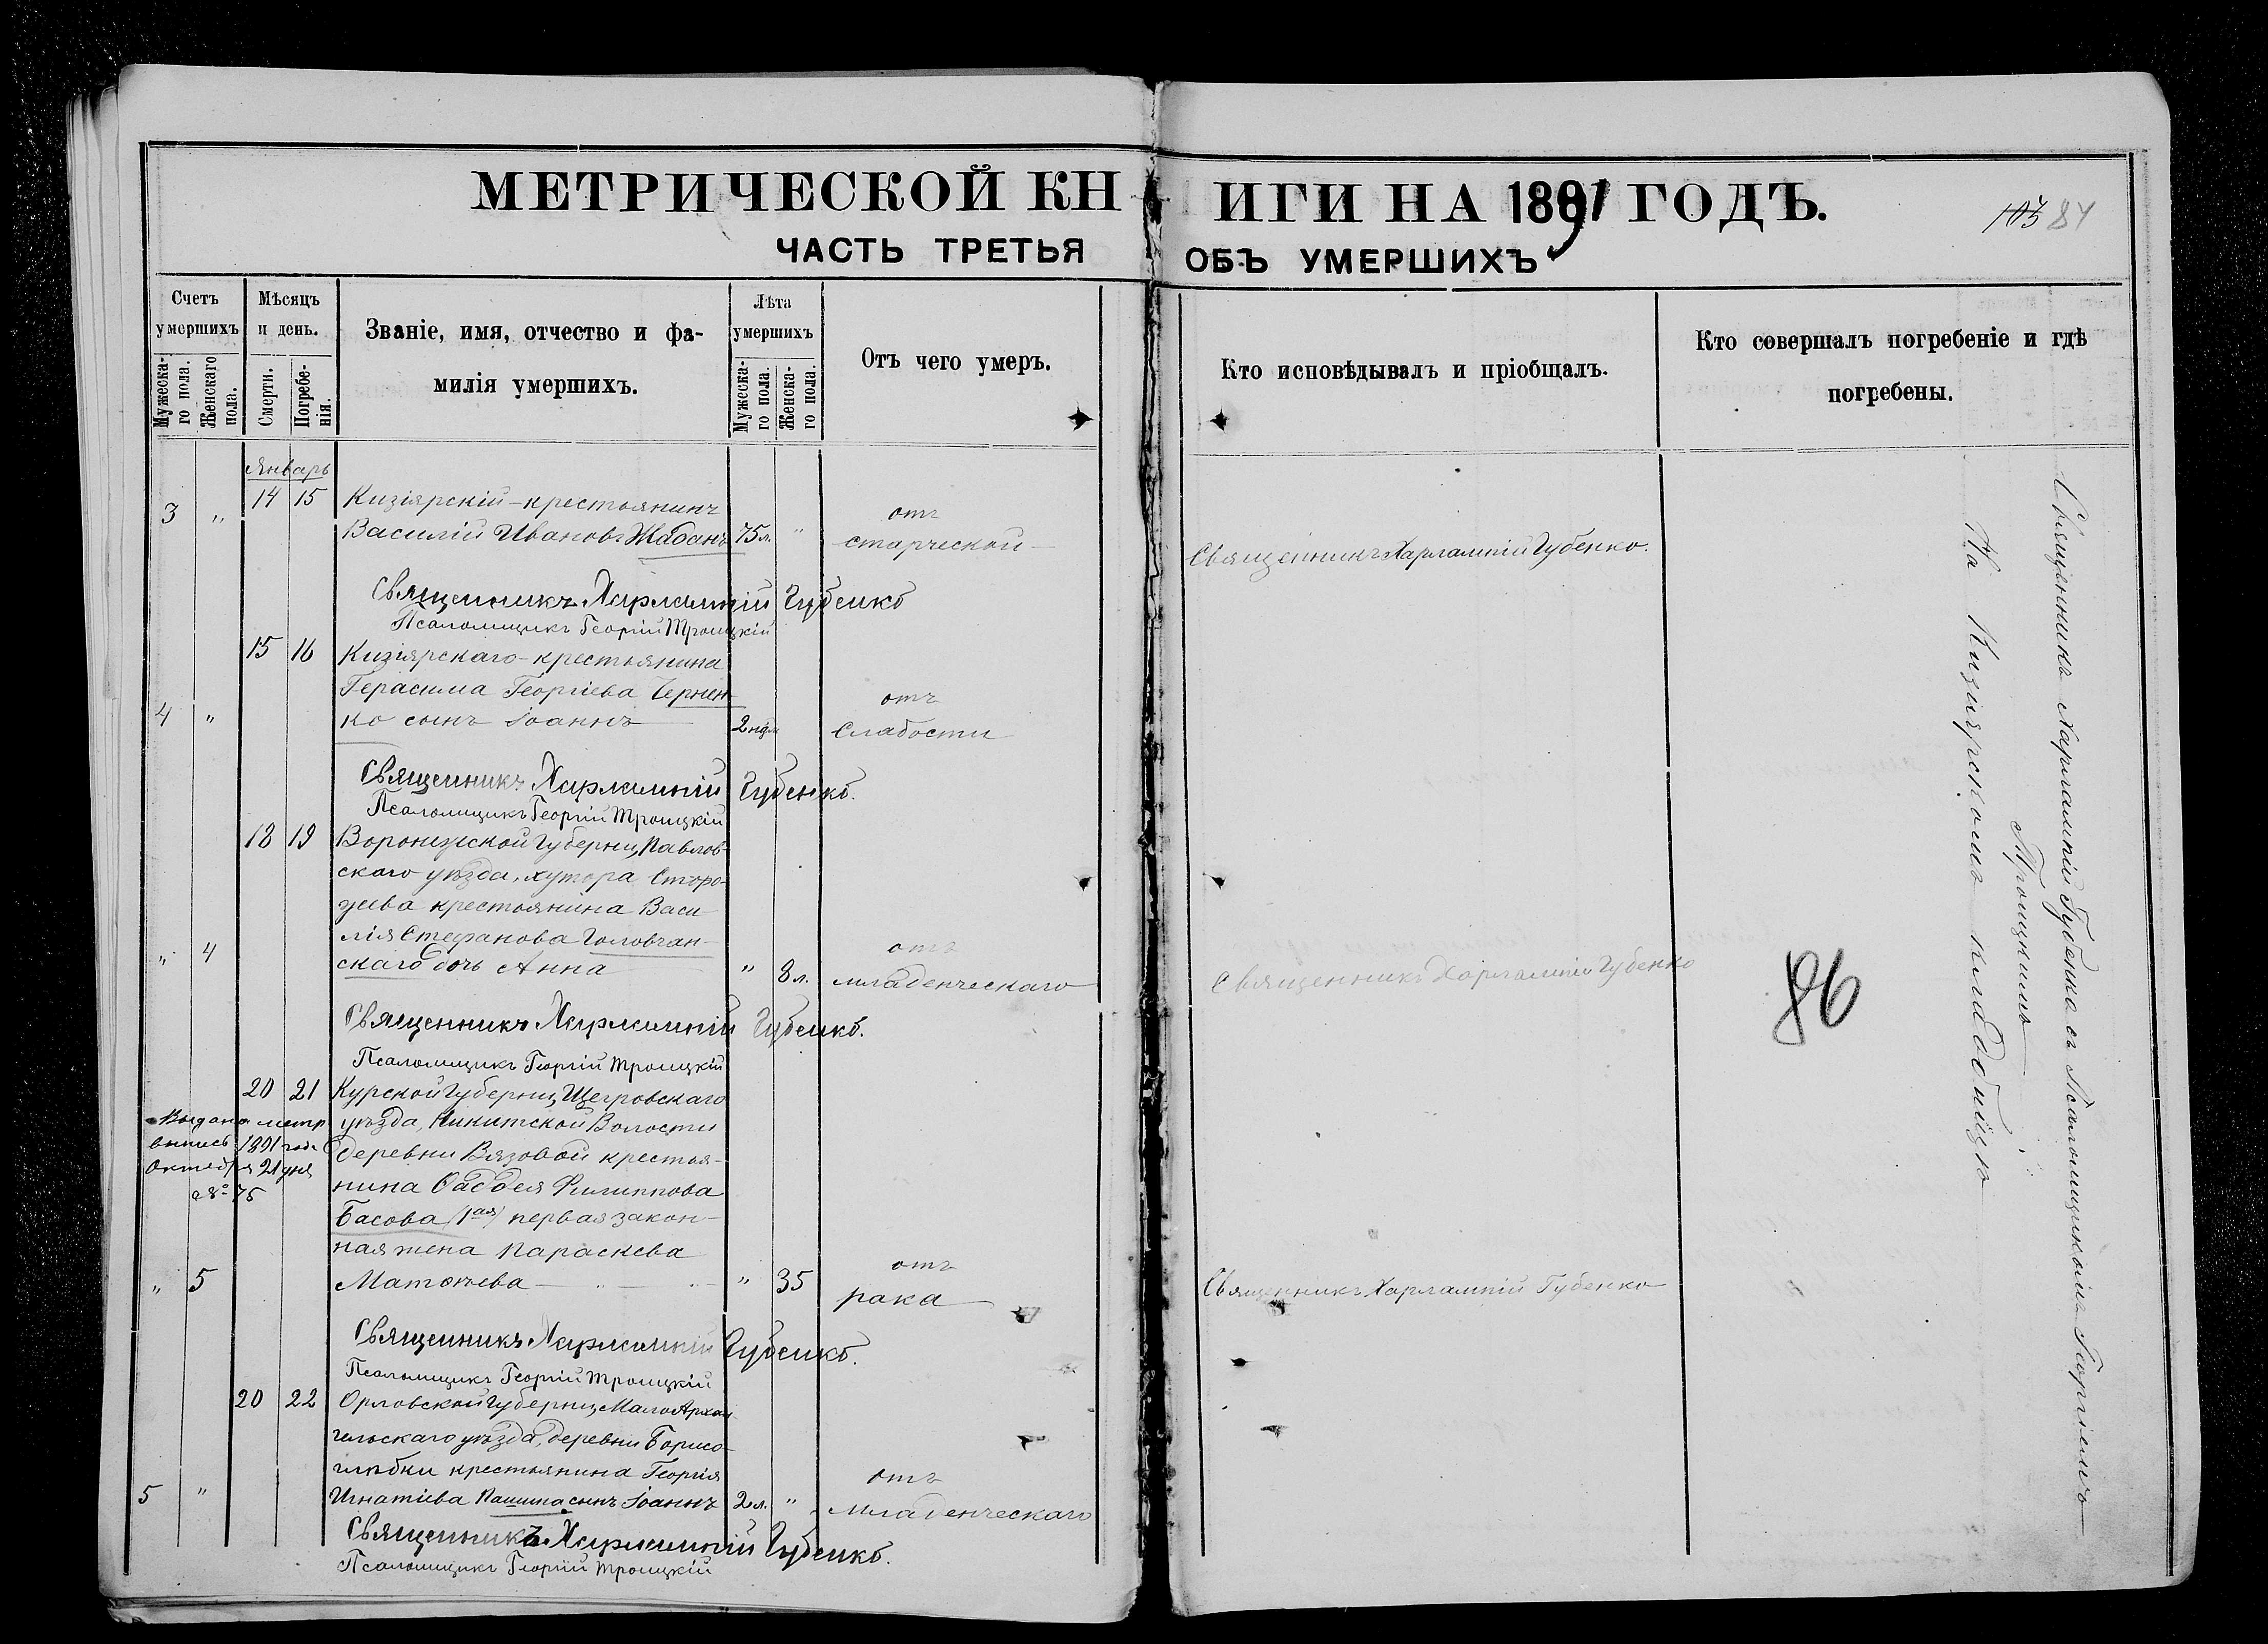 МЕТРИЧЕСКОЙ КНИГИ НА 1891 ГОДЪ.
103 84
ЧАСТЬ ТРЕТЬЯ ОБЪ УМЕРШИХЪ
Счетъ умершихъ
Мужеска-го пола.
Женскаго пола.
Мѣсяцъ и день.
Смерти.
Погребе-нія.
Званіе, имя, отчество и фа-
милія умершихъ.
Лѣта умершихъ
Мужеска-го пола.
Женска-го пола.
Отъ чего умеръ.
Кто исповѣдывалъ и пріобщалъ.
Кто совершалъ погребеніе и гдѣ
погребены.
Январь
3 " 14 15 Кизіярскій-крестьянинъ
Василій Ивановъ Жабанъ 75 л. " отъ старческой
Священникъ Харлампій Губенко.
Священникъ Харлампій Губенко
Псаломщикъ Георгій Троицкій
15 16 Кизіярскаго-крестьянина
Герасима Георгіева Чернен-
4 " ко сынъ Іоаннъ 2 нд. отъ Слабости
Священникъ Харлампій Губенко.
Псаломщикъ Георгій Троицкій
18 19 Воронежской Губерніи, Павлов-
скаго уѣзда, хутора Сторо-
жева крестьянина Васи-
лія Стефанова Головчан-
" 4 скаго дочь Анна " 8 л. отъ младенческаго
Священникъ Харлампій Губенко
Священникъ Харлампій Губенко.
Псаломщикъ Георгій Троицкій
20 21 Курской Губерніи, Щегровскаго
уѣзда, Никитской Волости
деревни Вязовой крестья-
нина Фаддея Филиппова
Басова (1ая) первая закон-
ная жена Параскева
" 5 Матѳѣева " 35 отъ рака
Выдана метр
выпись 1891 года
Октября 21 дня
№ 75
Священникъ Харлампій Губенко
Священникъ Харлампій Губенко.
Псаломщикъ Георгій Троицкій
20 22 Орловской Губерніи, Мало Архан
гельскаго уѣзда, деревни Борисо-
глѣбки крестьянина Георгія
5 " Игнатіева Пашина сынъ Іоаннъ 2 л. " отъ Младенческаго
Священникъ Харлампій Губенко.
Псаломщикъ Георгій Троицкій
86
Священникъ Харлампій Губенко съ Псаломщикомъ Георгіемъ
Троицкимъ
На Кизіярскомъ кладбищѣ